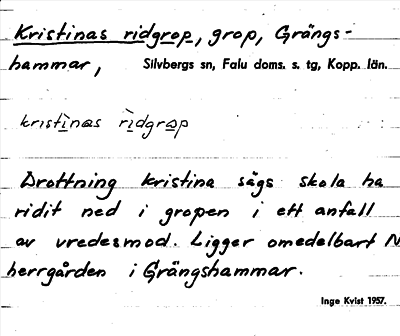 Kristinas ridgrop, grop, Grängs-
hammar, Silvbergs sn, Falu doms. s. tg, Kopp. län.
kristìnas rìdgrop
Drottning Kristina sägs skola ha
ridit ned i gropen i ett anfall
av vredesmod. Ligger omedelbart N
herrgården i Grängshammar.
Inge Kvist 1957.